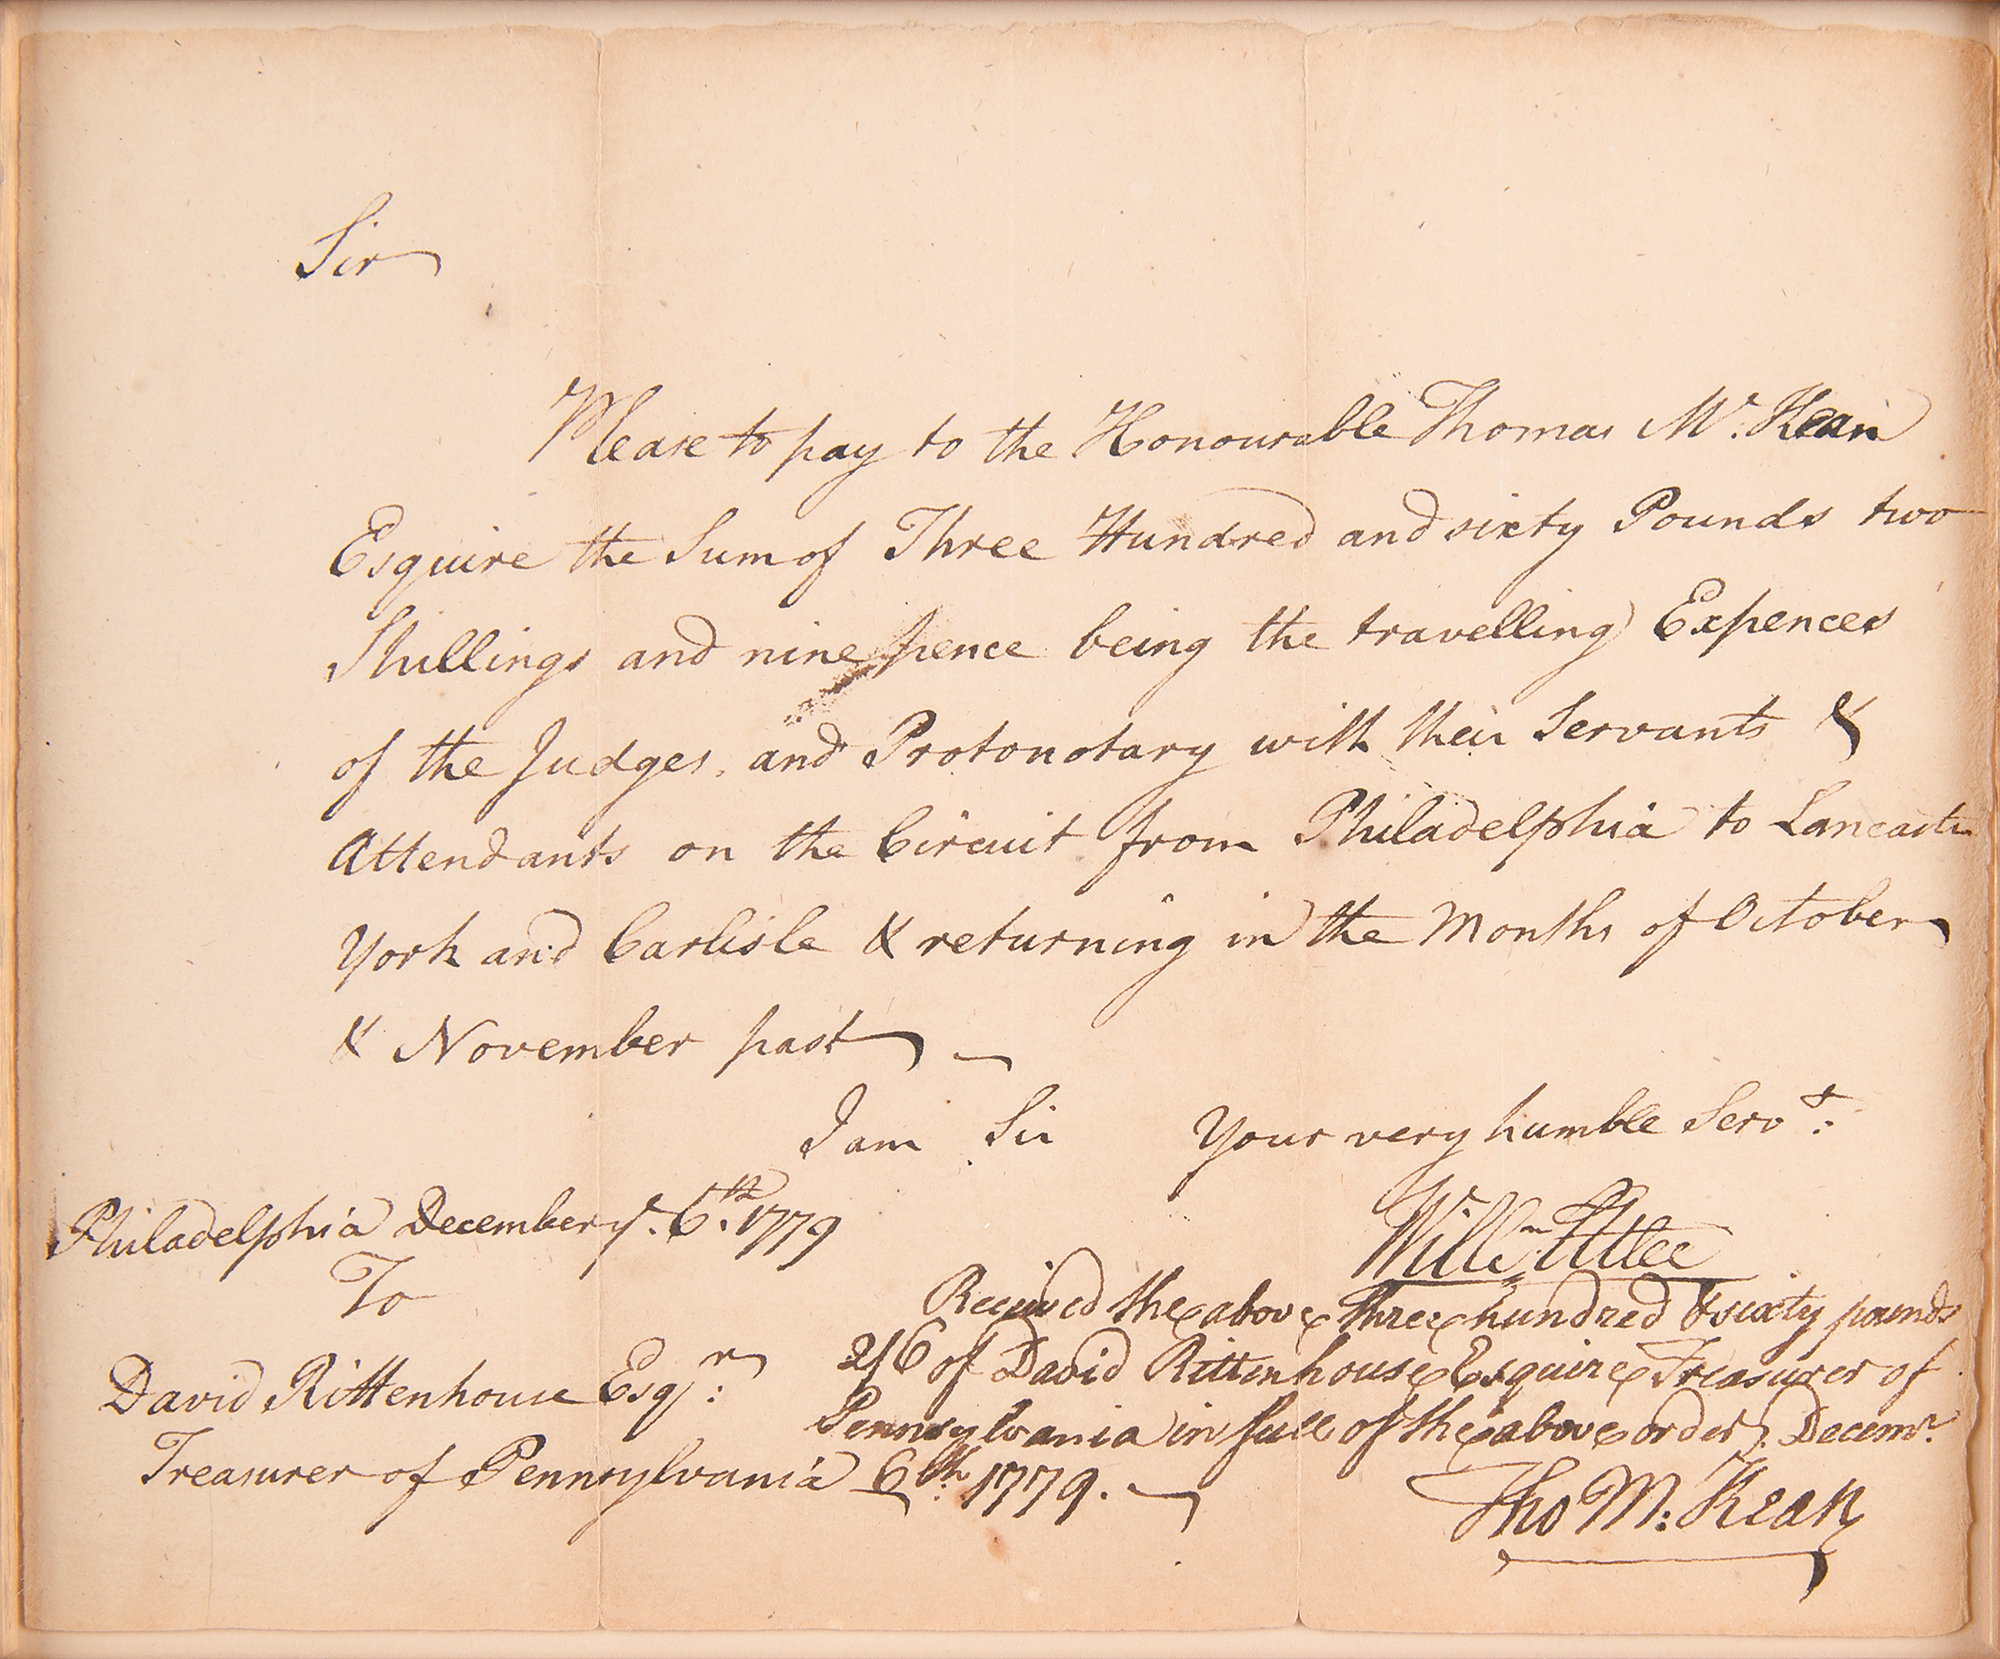 Sir
Please to pay to the Honourable Thomas Mc. Kean
Esquire the Sum of Three Hundred and sixty Pounds two
Shillings and nine pence being the travelling Expences
of the Judges, and Protonotary with their Servants &
Attendants on the Circuit from Philadelphia to Lancaster
York and Carlisle & returning in the Months of October
& November past
I am Sir Your very humble Servt:
Philadelphia December ye. 6th. 1779
Willm Atlee
To
David Rittenhouse Esqr:
Treasurer of Pennsylvania
Received the above three hundred & sixty pounds
2/6 of David Rittenhouse Esquire Treasurer of
Pennsylvania in full of the above order. Decemr.
6th. 1779.
Tho M: Kean